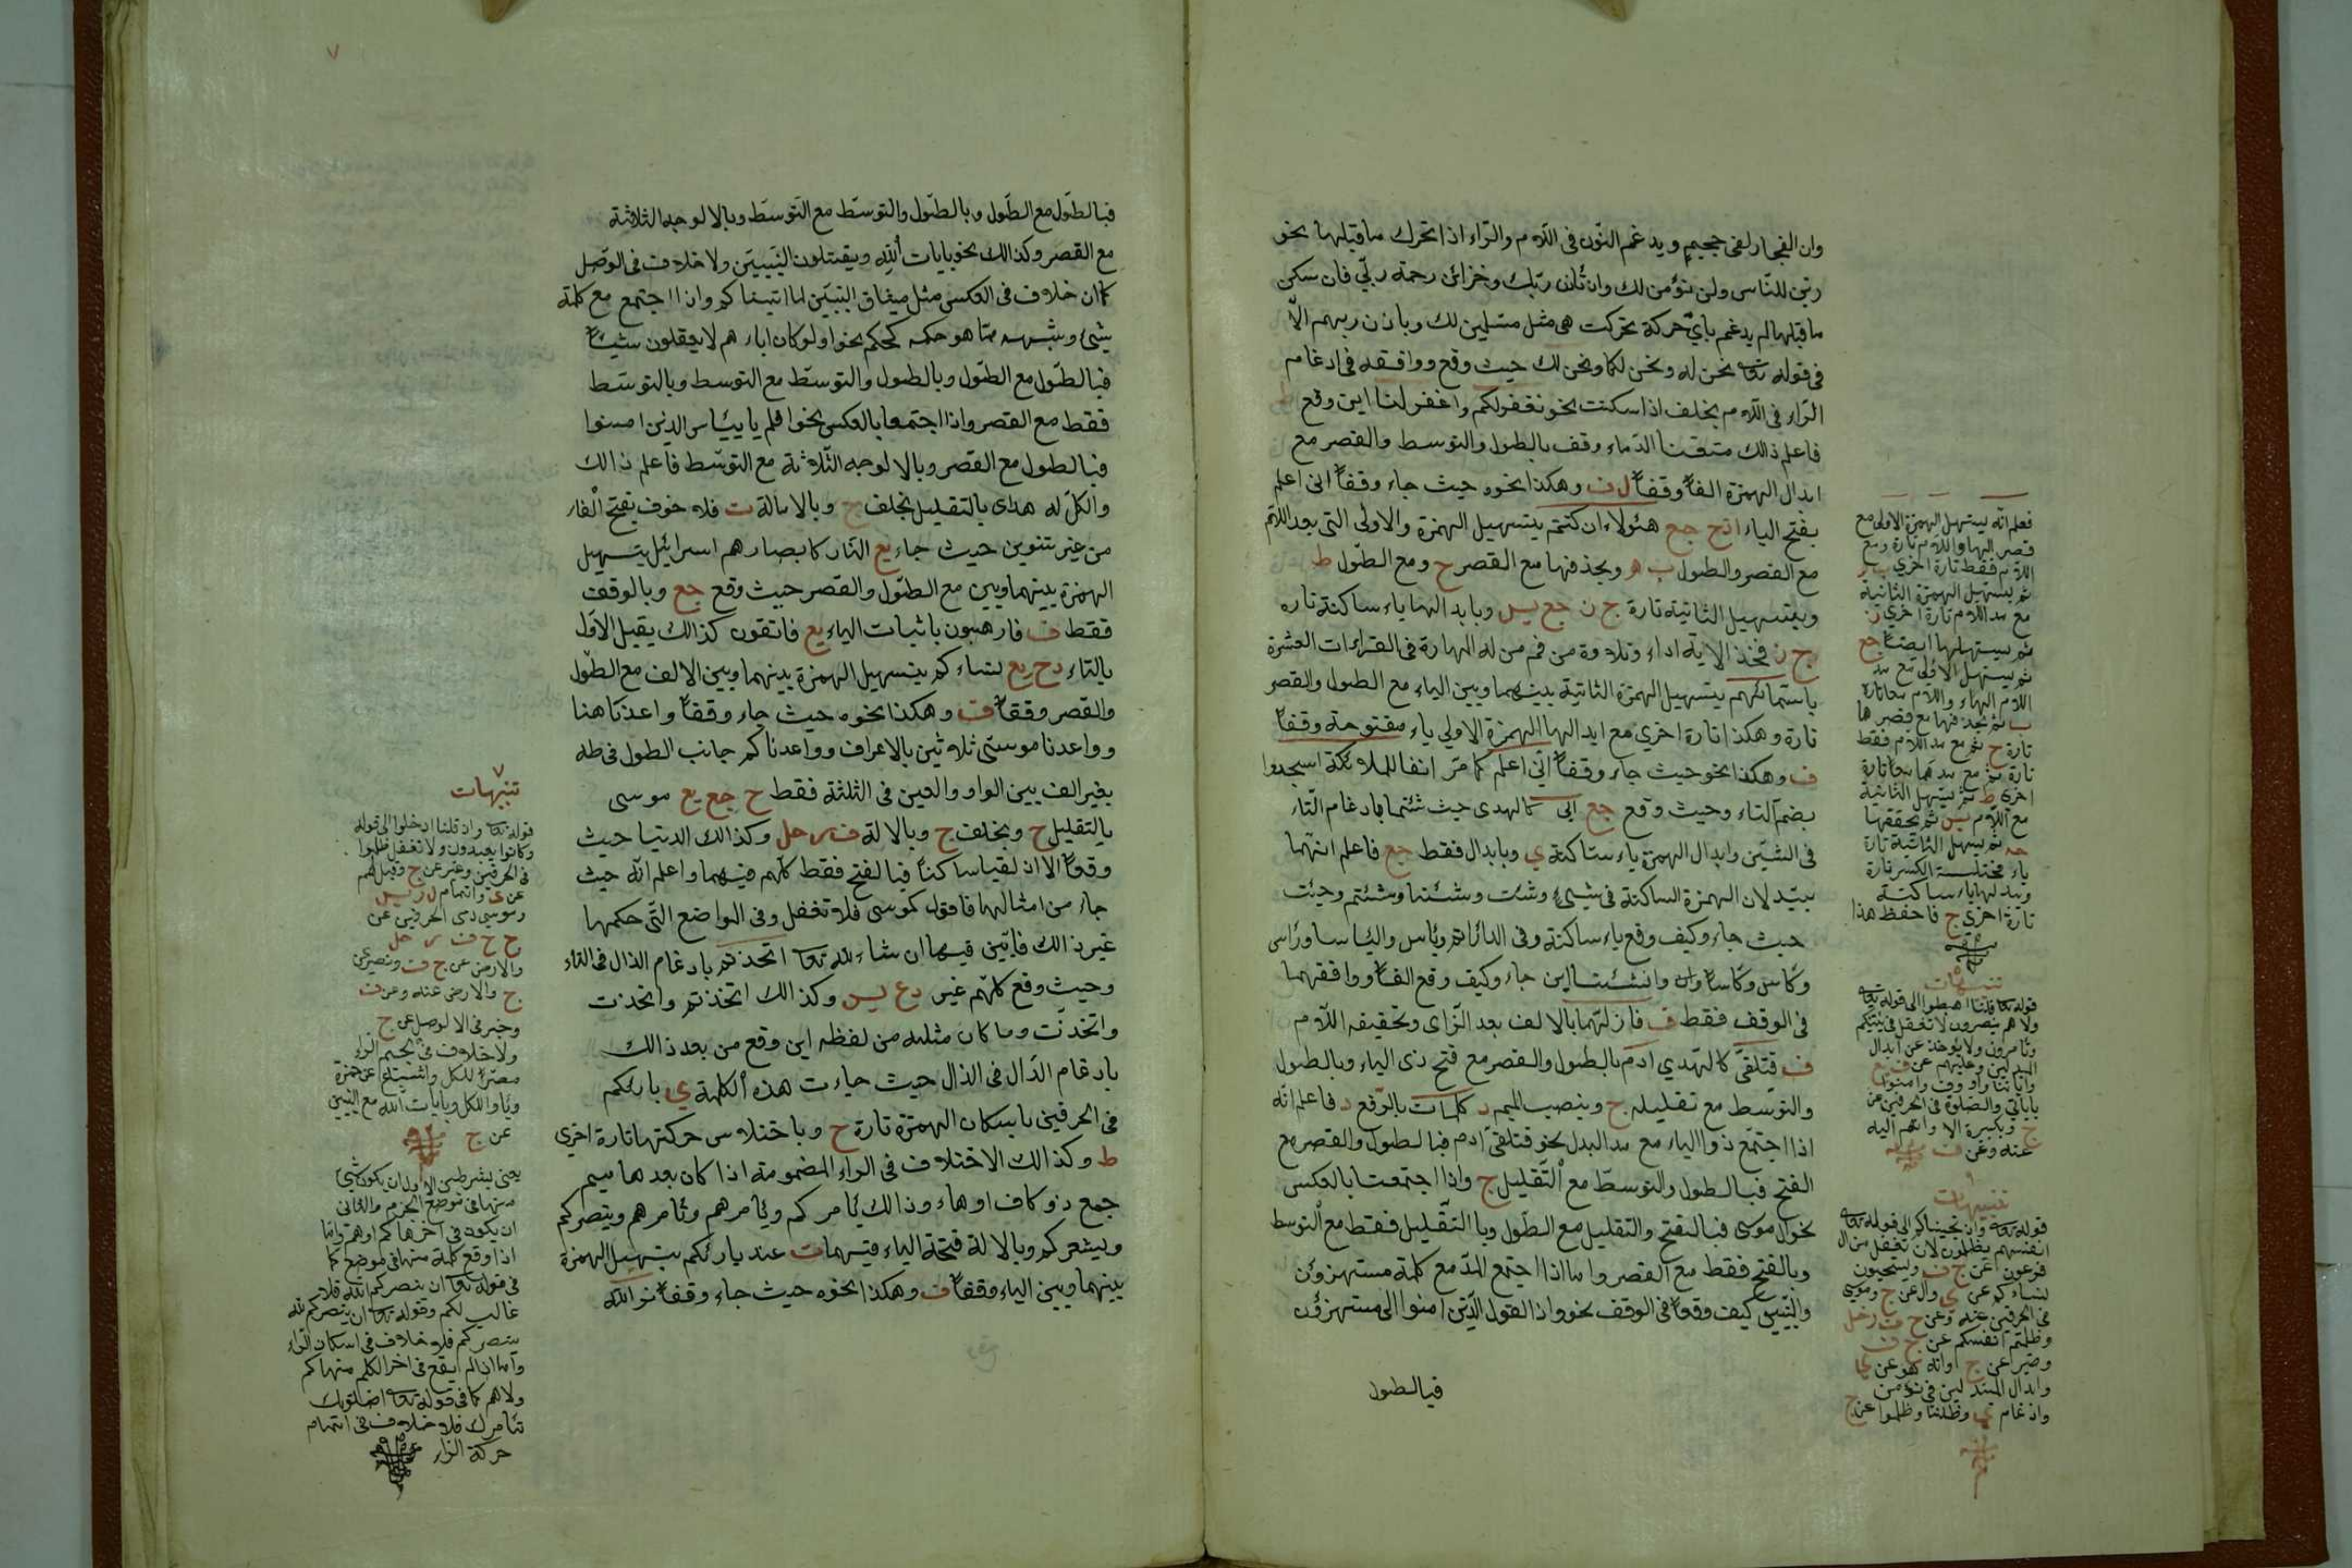 وان الفجار لفى جحيم ويدغم النون فى اللام والراء اذا تحرك ما قبلها نحو
زين للناس ولن نؤمن لك واذ تاذن ربك وخزائن رحمة ربى فان سكن
ما قبلها لم يدغم باى حركة تحركت هى مثل مسلمين لك وباذن ربهم الا
فى قوله تعا نحن له ونحن لكما ونحن لك حيث وقع ووافقه فى ادغام
الراء فى اللام بخلف اذا سكنت نحو نغفر لكم واغفر لنا اين وقع ط
فاعلم ذلك متقنا الدماء وقف بالطول والتوسط والقصر مع
ابدال الهمزة الفا وقفا ل ف وهكذا نحوه حيث جاء وقفا انى اعلم
بفتح الياء ا د ح جع هئولاء ان كنتم بتسهيل الهمزة والاولى التى بعد اللام
مع القصر والطول ب ه وبحذفها مع القصر ح ومع الطول ط
وبتسهيل الثانية تارة ج ن جع يس وبابدالها ياء ساكنة تارة
ج ز فخذ الاية اداء وتلاوة من فم من له المهارة فى القراءات العشرة
باسمائهم بتسهيل الهمزة الثانية بينهما وبين الياء مع الطول والقصر
تارة وهكذا تارة اخرى مع ابدالها الهمزة الاولى ياء مفتوحة وقفا
ف وهكذا نحو حيث جاء وقفا انى اعلم كما مر انفا للملائكة اسجدوا
بضم التاء وحيث وقع جع ابى كالهدى حيث شئتما بادغام الثاء
فى الشين وابدال الهمزة ياء ساكنة ي وبابدال فقط جع فاعلم انهما
يبدلان الهمزة الساكنة فى شىء وشئت وشئنا وشئتم وجئت
حيث جاء وكيف وقع ياء ساكنة وفى الداراتم وياس والباسا وراس
وكاس وكاسا وان وانشئنا اين جاء وكيف وقع الفا ووافقهما
فى الوقف فقط ف فازلهما بالالف بعد الزاى وتخفيف اللام
ف فتلقى كالهدى ادم بالطول والقصر مع فتح ذى الياء وبالطول
والتوسط مع تقليله ج وبنصب الميم د كلمات بالرفع د فاعلم انه
اذا اجتمع ذوا الياء مع مد البدل نحو فتلقى ادم فبالطول والقصر مع
الفتح فبالطول والتوسط مع التقليل ج واذا اجتمعت بالعكس
نحو ال موسى فبالفتح والتقليل مع الطول وبالتقليل فقط مع التوسط
وبالفتح فقط مع القصر واما اذا اجتمع المد مع كلمة مستهزؤن
والنبيين كيف وقعا فى الوقف نحو واذا لقوا الذين امنوا الى مستهزؤن
فبالطول
فعلم انه بتسهيل الهمزة الاولى مع
قصر الهاء واللام تارة ومع
اللام فقط تارة اخرى ب
ثم بتسهيل الهمزة الثانية
مع مد اللام تارة اخرى ن
ثم بتسهيلها ايضا جع
ثم بتسهيل الاولى مع مد
اللام الهاء واللام معا تارة
ب ثم بحذفها مع قصرها
تارة ح ثم مع مد اللام فقط
تارة ثم مع مدهما معا تارة
اخرى ط ثم بتسهيل الثانية
مع اللام يس ثم بحققها
ثم بتسهيل الثانية تارة
ياء مختلسة الكسر تارة
ويبدلها ياء ساكنة
تارة اخرى ج فاحفظ هذا
تنبيهات
قوله تعا قلنا اهبطوا الى قوله تعا
ولا هم ينصرون لا تغفل
وتامرون ولا يؤخذ عن ابدال
وعليهم عن
باياتى والصلوة فى الحرفين عن
ج وبكبيرة الا وانهم اليه
عنه وعن ف
تنبيهات
قوله تعا واذ نجيناكم الى قوله تعا
انفسهم يظلمون لا تغفل من ال
فرعون عن ج ف ويستحيون
نساءكم عن ي وال عن ج وموسى
فى الحرفين عنه وعن ح ف ر حل
وظلمتم انفسكم عن ج ف
وخير عن ج وانه هو عن
وابدال المبدلين فى نؤمن
وادغام ي وظللنا وظلموا عن ج
٧
فبالطول مع الطول وبالطول والتوسط مع التوسط وبالاوجه الثلاثة
مع القصر وكذالك نحو بايات الله ويقتلون النبيين ولا خلاف فى الوصل
كما ان خلاف فى العكس مثل ميثاق النبيين لما اتيناكم واذا اجتمع مع كلمة
شىء وشبهه مما هو حكمه كحكم نحو اولو كان اباءهم لا يعقلون شيئا
فبالطول مع الطول وبالطول والتوسط مع التوسط وبالتوسط
فقط مع القصر واذا اجتمعا بالعكس نحو افلم ياييئاس الذين امنوا
فبالطول مع القصر وبالاوجه الثلاثة مع التوسط فاعلم ذالك
والكل له هداى بالتقليل بخلف ج وبالامالة ت فلا خوف بفتح الفاء
من غير تنوين حيث جاء يع النار كابصارهم اسرائيل بتسهيل
الهمزة بينهما وبين مع الطول والقصر حيث وقع جع وبالوقف
فقط ف فارهبون باثبات الياء يع فاتقون كذالك يقبل الاول
بالتاء د ح يع نساءكم بتسهيل الهمزة بينهما وبين الالف مع الطول
والقصر وقفا ف وهكذا نحوه حيث جاء وقفا واعدنا هنا
وواعدنا موسى ثلاثين بالاعراف وواعدناكم جانب الطور فى طه
بغير الف بين الواو والعين فى الثلثة فقط ح جع يع موسى
بالتقليل ح وبخلف ج وبالامالة ف ر حل وكذالك الدنيا حيث
وقعا الا ان لقيا ساكنا فبالفتح فقط كلهم فيهما واعلم انه حيث
جاء من امثالها فاقول كموسى فلا تغفل وفى المواضع التى حكمها
غير ذالك فابين فيها ان شاء الله تعا اتخذتم بادغام الذال فى التاء
وحيث وقع كلهم غير د ع يس وكذالك اتخذتم واتخذت
واتخذت وما كان مثله من لفظه اين وقع من بعد ذالك
بادغام الدال فى الذال حيث جاءت هذه الكلمة ي بارئكم
فى الحرفين باسكان الهمزة تارة ح وباختلاس حركتها تارة اخرى
ط وكذالك الاختلاف فى الراء المضمومة اذا كان بعدها ميم
جمع ذو كاف او هاء وذالك يامركم ويامرهم وتامرهم وينصركم
ويشعركم وبالامالة فتحة الياء فيهما ت عند بارئكم بتسهيل الهمزة
بينهما وبين الياء وقفا ف وهكذا نحوه حيث جاء وقفا نر الله
تنبيهات ٧
قوله تعا واذ قلنا ادخلوا الى قوله
وكانوا يعتدون ولا تغفل ظلموا
فى الحرفين وغير عن ج وقيل لهم
عن ي واشمام ل ر يس
وموسى فى الحرفين عن
ح ج ف ر حل
والارض عن ج ف وبصير عن
ج والارض عنه وعن ف
وخير فى الا لوصل عن ج
ولا خلاف فى تفخيم الراء
مصرا للكل
وباؤا للكل وبايات الله مع النبيين
عن ج
يعنى بشرطين الاول ان يكون شىء
منها فى موضع الجزم والثانى
ان يكون فى اخرها كم او هم واما
اذا وقع كلمة منها فى موضع كما
فى قوله تعا ان ينصركم الله فلا
غالب لكم وقوله تعا ان ينصركم الله
ينصركم فلا خلاف فى اسكان الراء
واما ان لم يقع فى اخر الكلم منها كم
ولا هم كما فى قوله تعا اصلوتك
تامرك فلا خلاف فى اتمام
حركة الراء